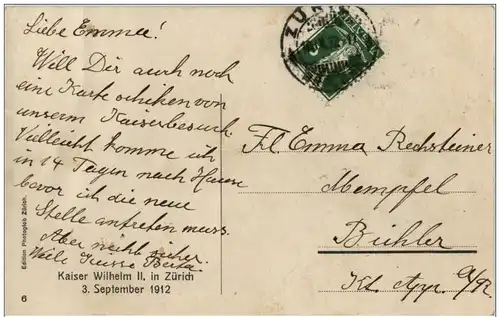 Liebe Emmea!
Will Dir auch noch
eine Karte schiken von
unserm Kaiserbesuch.
Vielleicht komme ich
in 14 Tagen nach Hause
bevor ich die neue
Stelle antreten muss.
Aber nicht sicher.
Viele Grüsse Berta.
Kaiser Wilhelm II. in Zürich
3. September 1912
Edition Photoglob Zürich.
6
ZÜRICH
Frl Emma Rechsteiner
Mempfel
Bühler
Kt. App. a/Rh